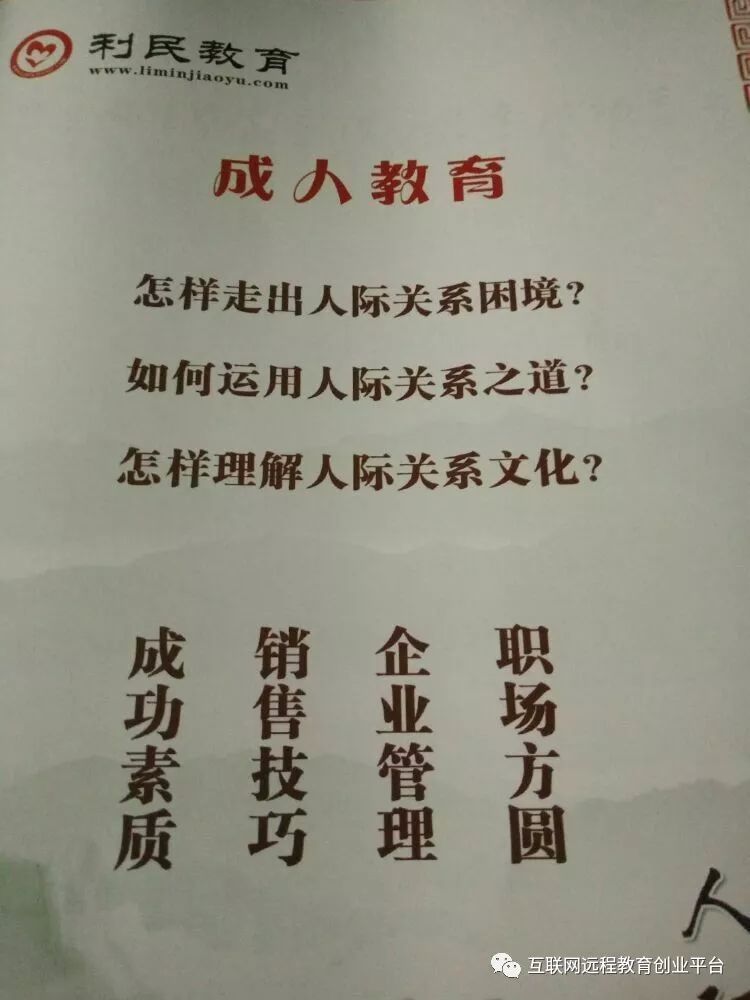 利民教育
www.liminjiaoyu.com
成人教育
怎样走出人际关系困境?
如何运用人际关系之道?
怎样理解人际关系文化?
成功素质
销售技巧
企业管理
职场方圆
人
互联网远程教育创业平台